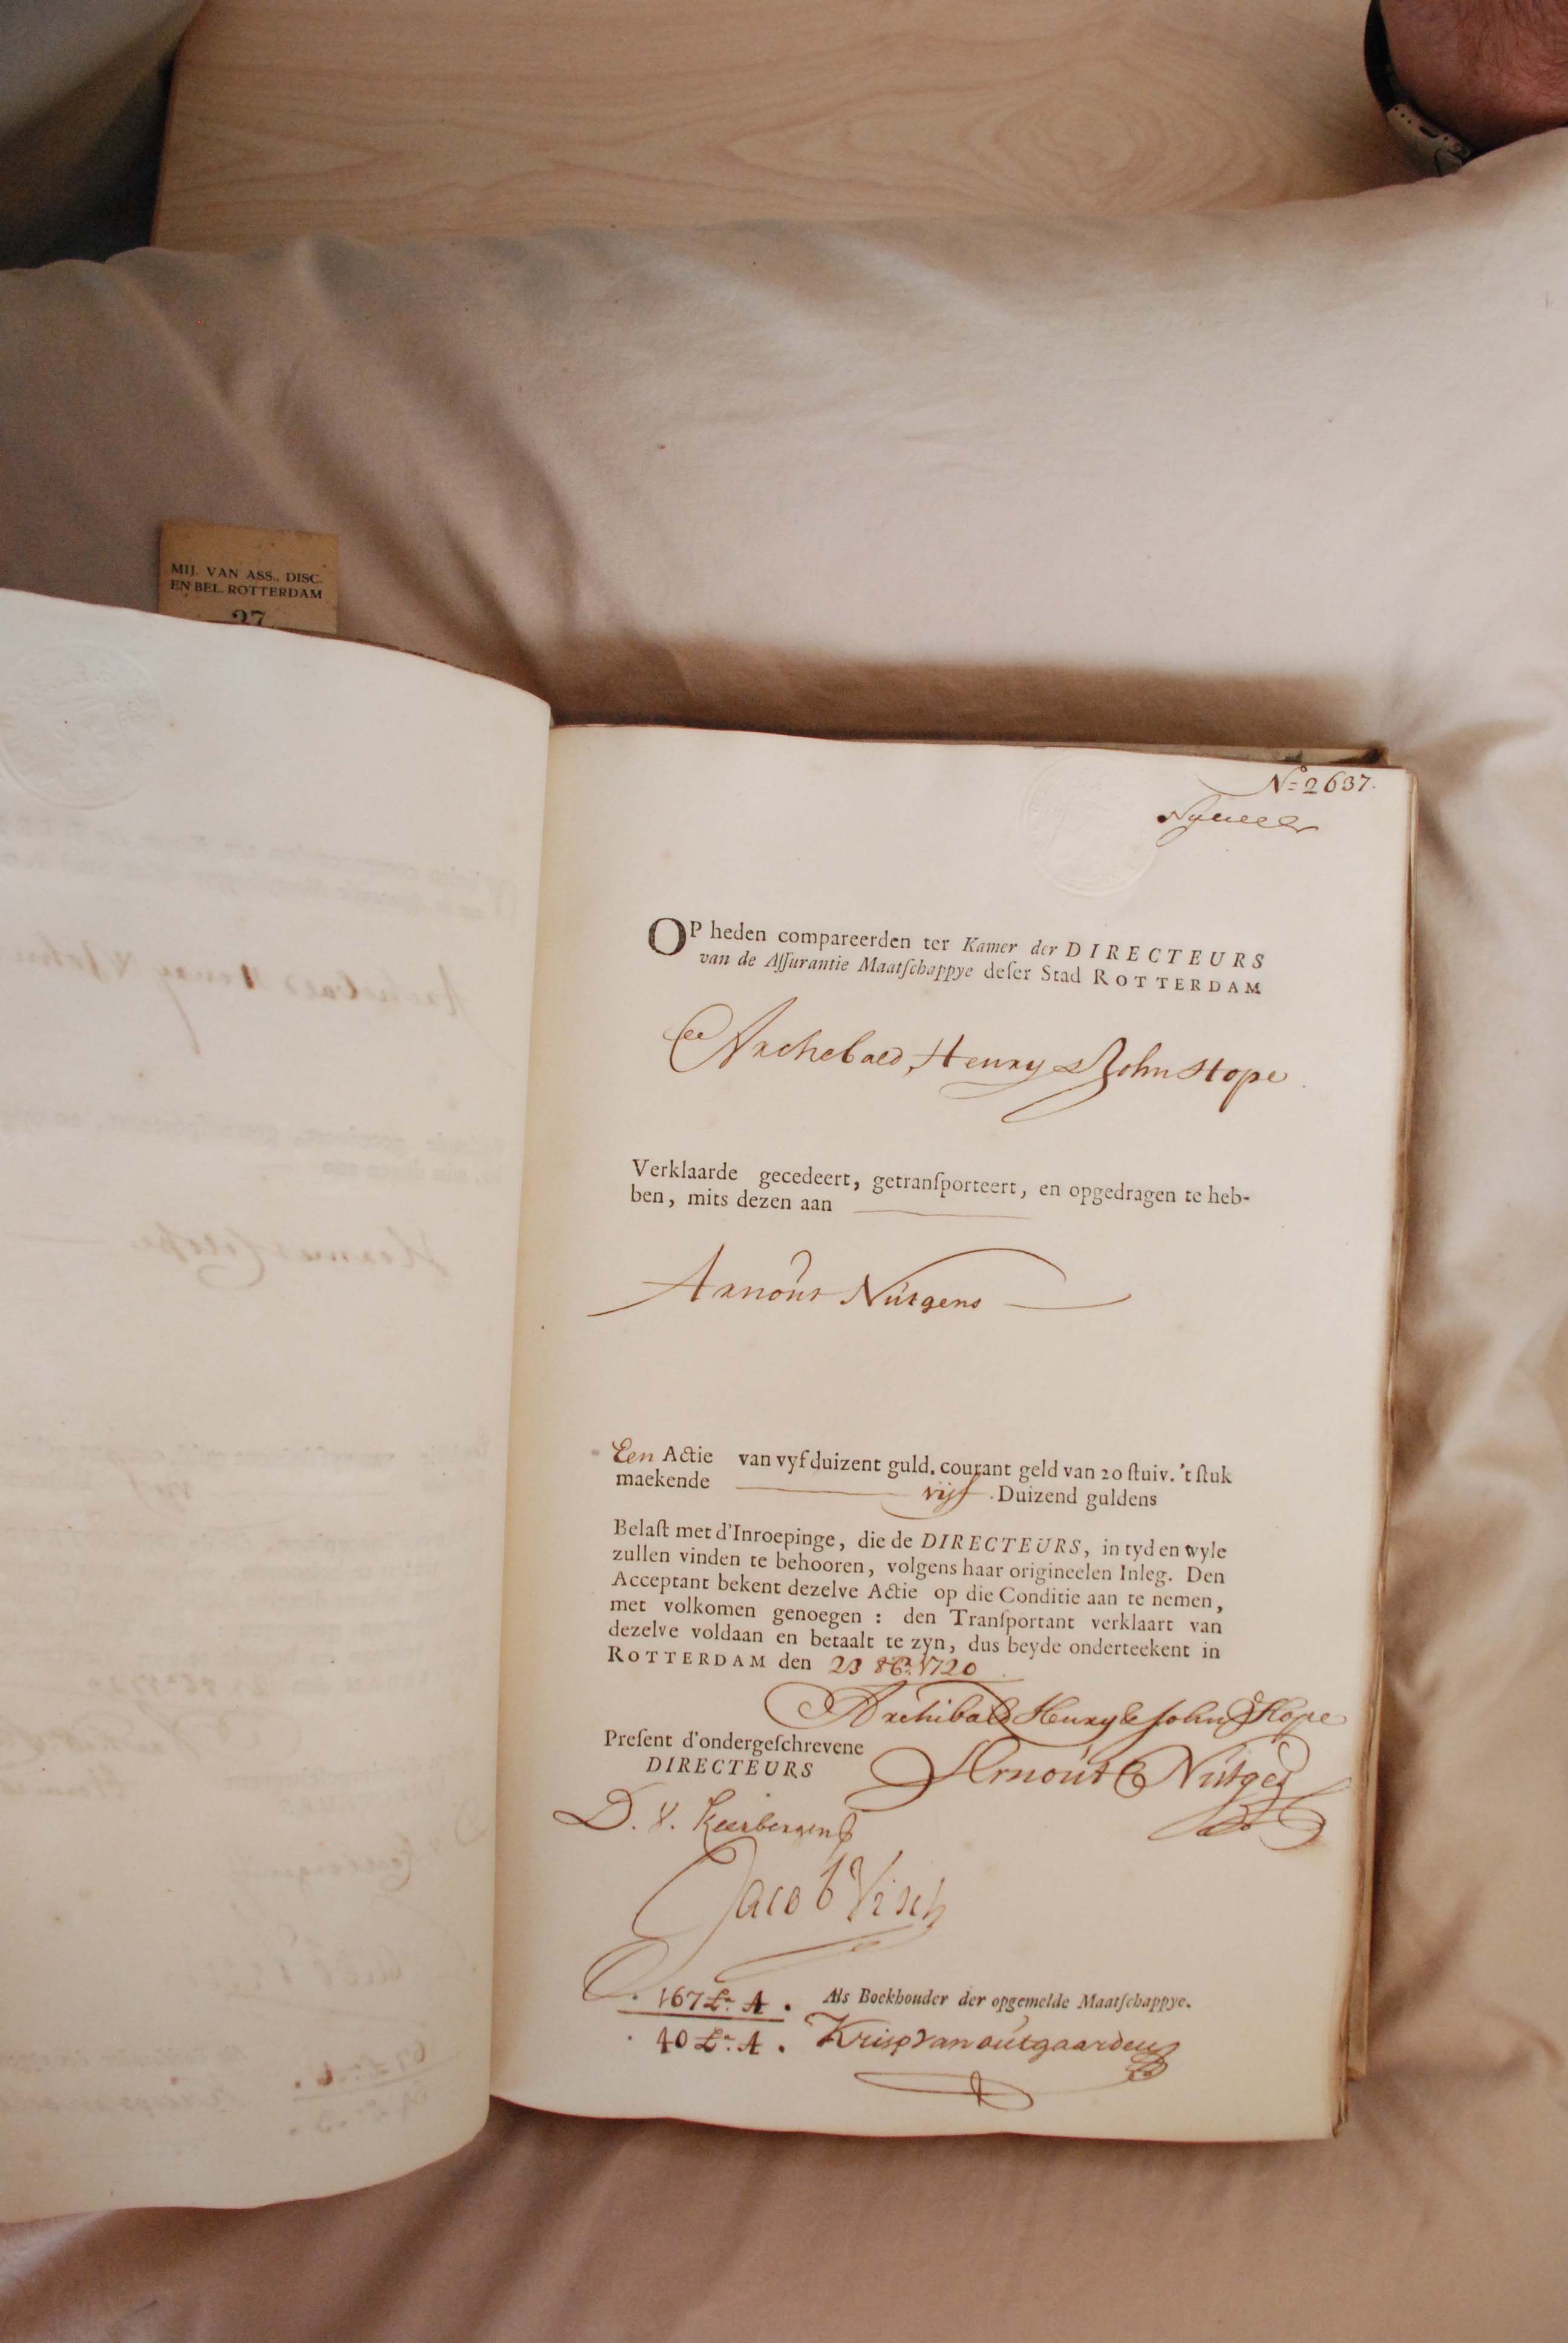 MIJ. VAN ASS., DISC.
EN BEL. ROTTERDAM
27
No 2637.
OP heden compareerden ter Kamer der DIRECTEURS
van de Aſſurantie Maatſchappye deſer Stad ROTTERDAM
Archebald, Henry & John Hope
Verklaarde gecedeert, getranſporteert, en opgedragen te heb-
ben, mits dezen aan
Arnoút Nútgens
Een Actie van vyf duizent guld. courant geld van 20 ſtuiv. 't ſtuk
maekende vijf Duizend guldens
Belaſt met d'Inroepinge, die de DIRECTEURS, in tyd en wyle
zullen vinden te behooren, volgens haar origineelen Inleg. Den
Acceptant bekent dezelve Actie op die Conditie aan te nemen,
met volkomen genoegen : den Tranſportant verklaart van
dezelve voldaan en betaalt te zyn, dus beyde onderteekent in
ROTTERDAM den 23 8b. 1720
Archibald Henry & John Hope
Preſent d'ondergeſchrevene
DIRECTEURS
Arnoút Nútges
D. V. Keerbergen
Jacob Visch
167 Lr. A. Als Boekhouder der opgemelde Maatſchappye.
40 Lr. A. Krisp van oútgaarden